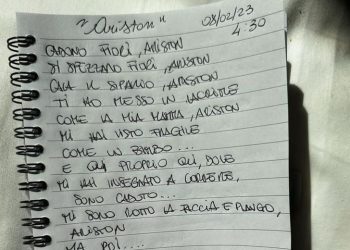 "Ariston" 08/02/23
4:30
CADONO FIORI, ARISTON
SI SPEZZANO FIORI, ARISTON
CALA IL SIPARIO, ARISTON
TI HO MESSO IN LACRIME
COME LA MIA MAMMA, ARISTON
MI HAI VISTO FRAGILE
COME UN BIMBO...
E QUI PROPRIO QUI, DOVE
MI HAI INSEGNATO A CORRERE,
SONO CADUTO...
MI SONO ROTTO LA FACCIA E PIANGO,
ARISTON
MA POI...